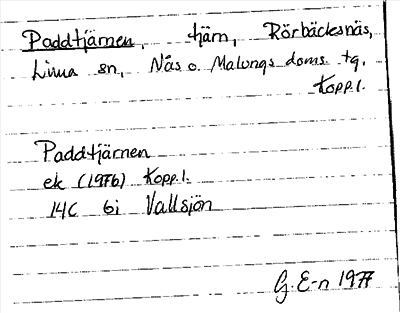 Paddtjärnen, tjärn, Rörbäcksnäs,
Lima sn, Nås o. Malungs doms. tg,
Kopp.l.
Paddtjärnen
ek (1976) Kopp.l.
14C 6i Vallsjön
G. E-n 1977